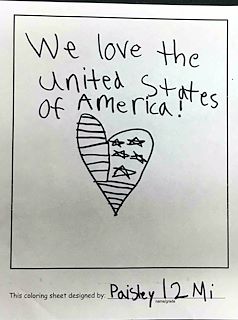 We love the
United States
of America!
This coloring sheet designed by: Paisley 12 Mi
name/grade